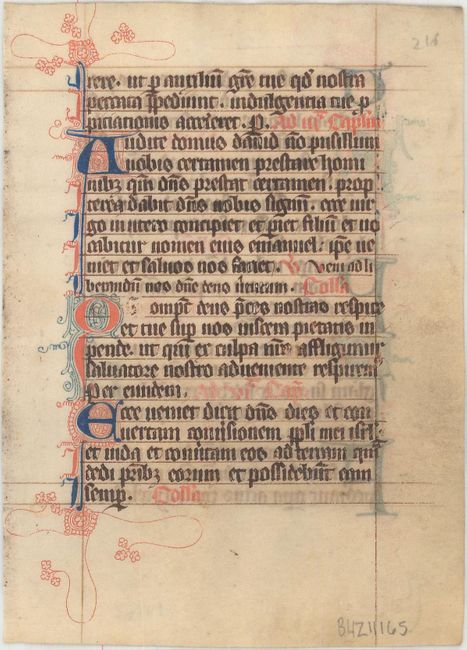 216
rere. ut p auxiliū gr̄e tue qd̄ nostra
peccata īpediunt. indulgentia tue p
piciationis acceleret. P. Ad vs̄ Caplm̄
Audite domus dauid nō pusillum
uobis certamen prestare homi
nibz qm̄ dn̄s prestat certamen. prop
terea dabit dn̄s uobis signū. ecce uir
go in utero concipiet et pariet filiū et uo
cabitur nomen eius emanuel. ipe ue
niet et saluos nos faciet. Veni ad li
berandū nos dn̄e deus uirtutum. Coll̄a
deus p̄ces nostras respice
et tue sup nos uiscera pietatis in
pende. ut qui ex culpa nr̄a affligimur
saluatore nostro adueniente respirem9
Per eundem. Ad Cap̄.
Ecce uenient dicit dn̄s dies et con
uertam conuersionem ppli mei isrl̄
et iuda et conuertam eos ad terram quā
dedi pr̄ibz eorum et possidebūt eam
semp. Coll̄a
BHZ11165